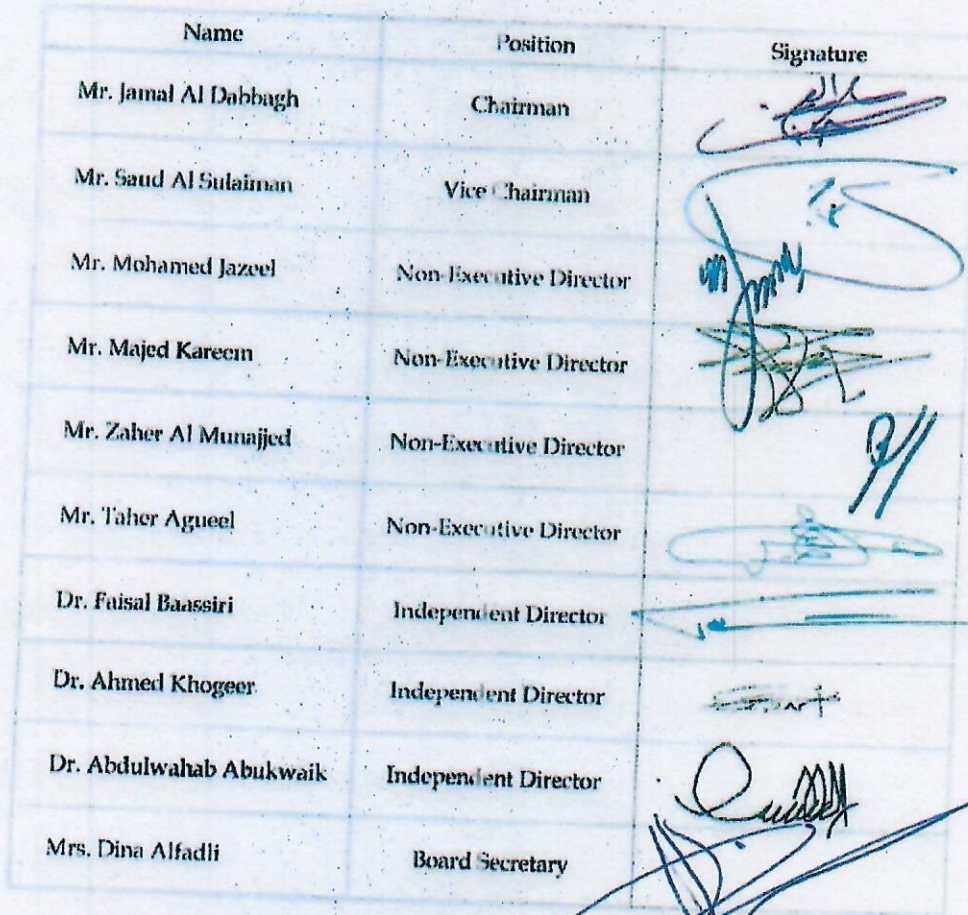 Name Position Signature
Mr. Jamal Al Dabbagh Chairman
Mr. Saud Al Sulaiman Vice Chairman
Mr. Mohamed Jazeel Non-Executive Director
Mr. Majed Kareem Non-Executive Director
Mr. Zaher Al Munajjed Non-Executive Director
Mr. Taher Agueel Non-Executive Director
Dr. Faisal Baassiri Independent Director
Dr. Ahmed Khogeer Independent Director
Dr. Abdulwahab Abukwaik Independent Director
Mrs. Dina Alfadli Board Secretary